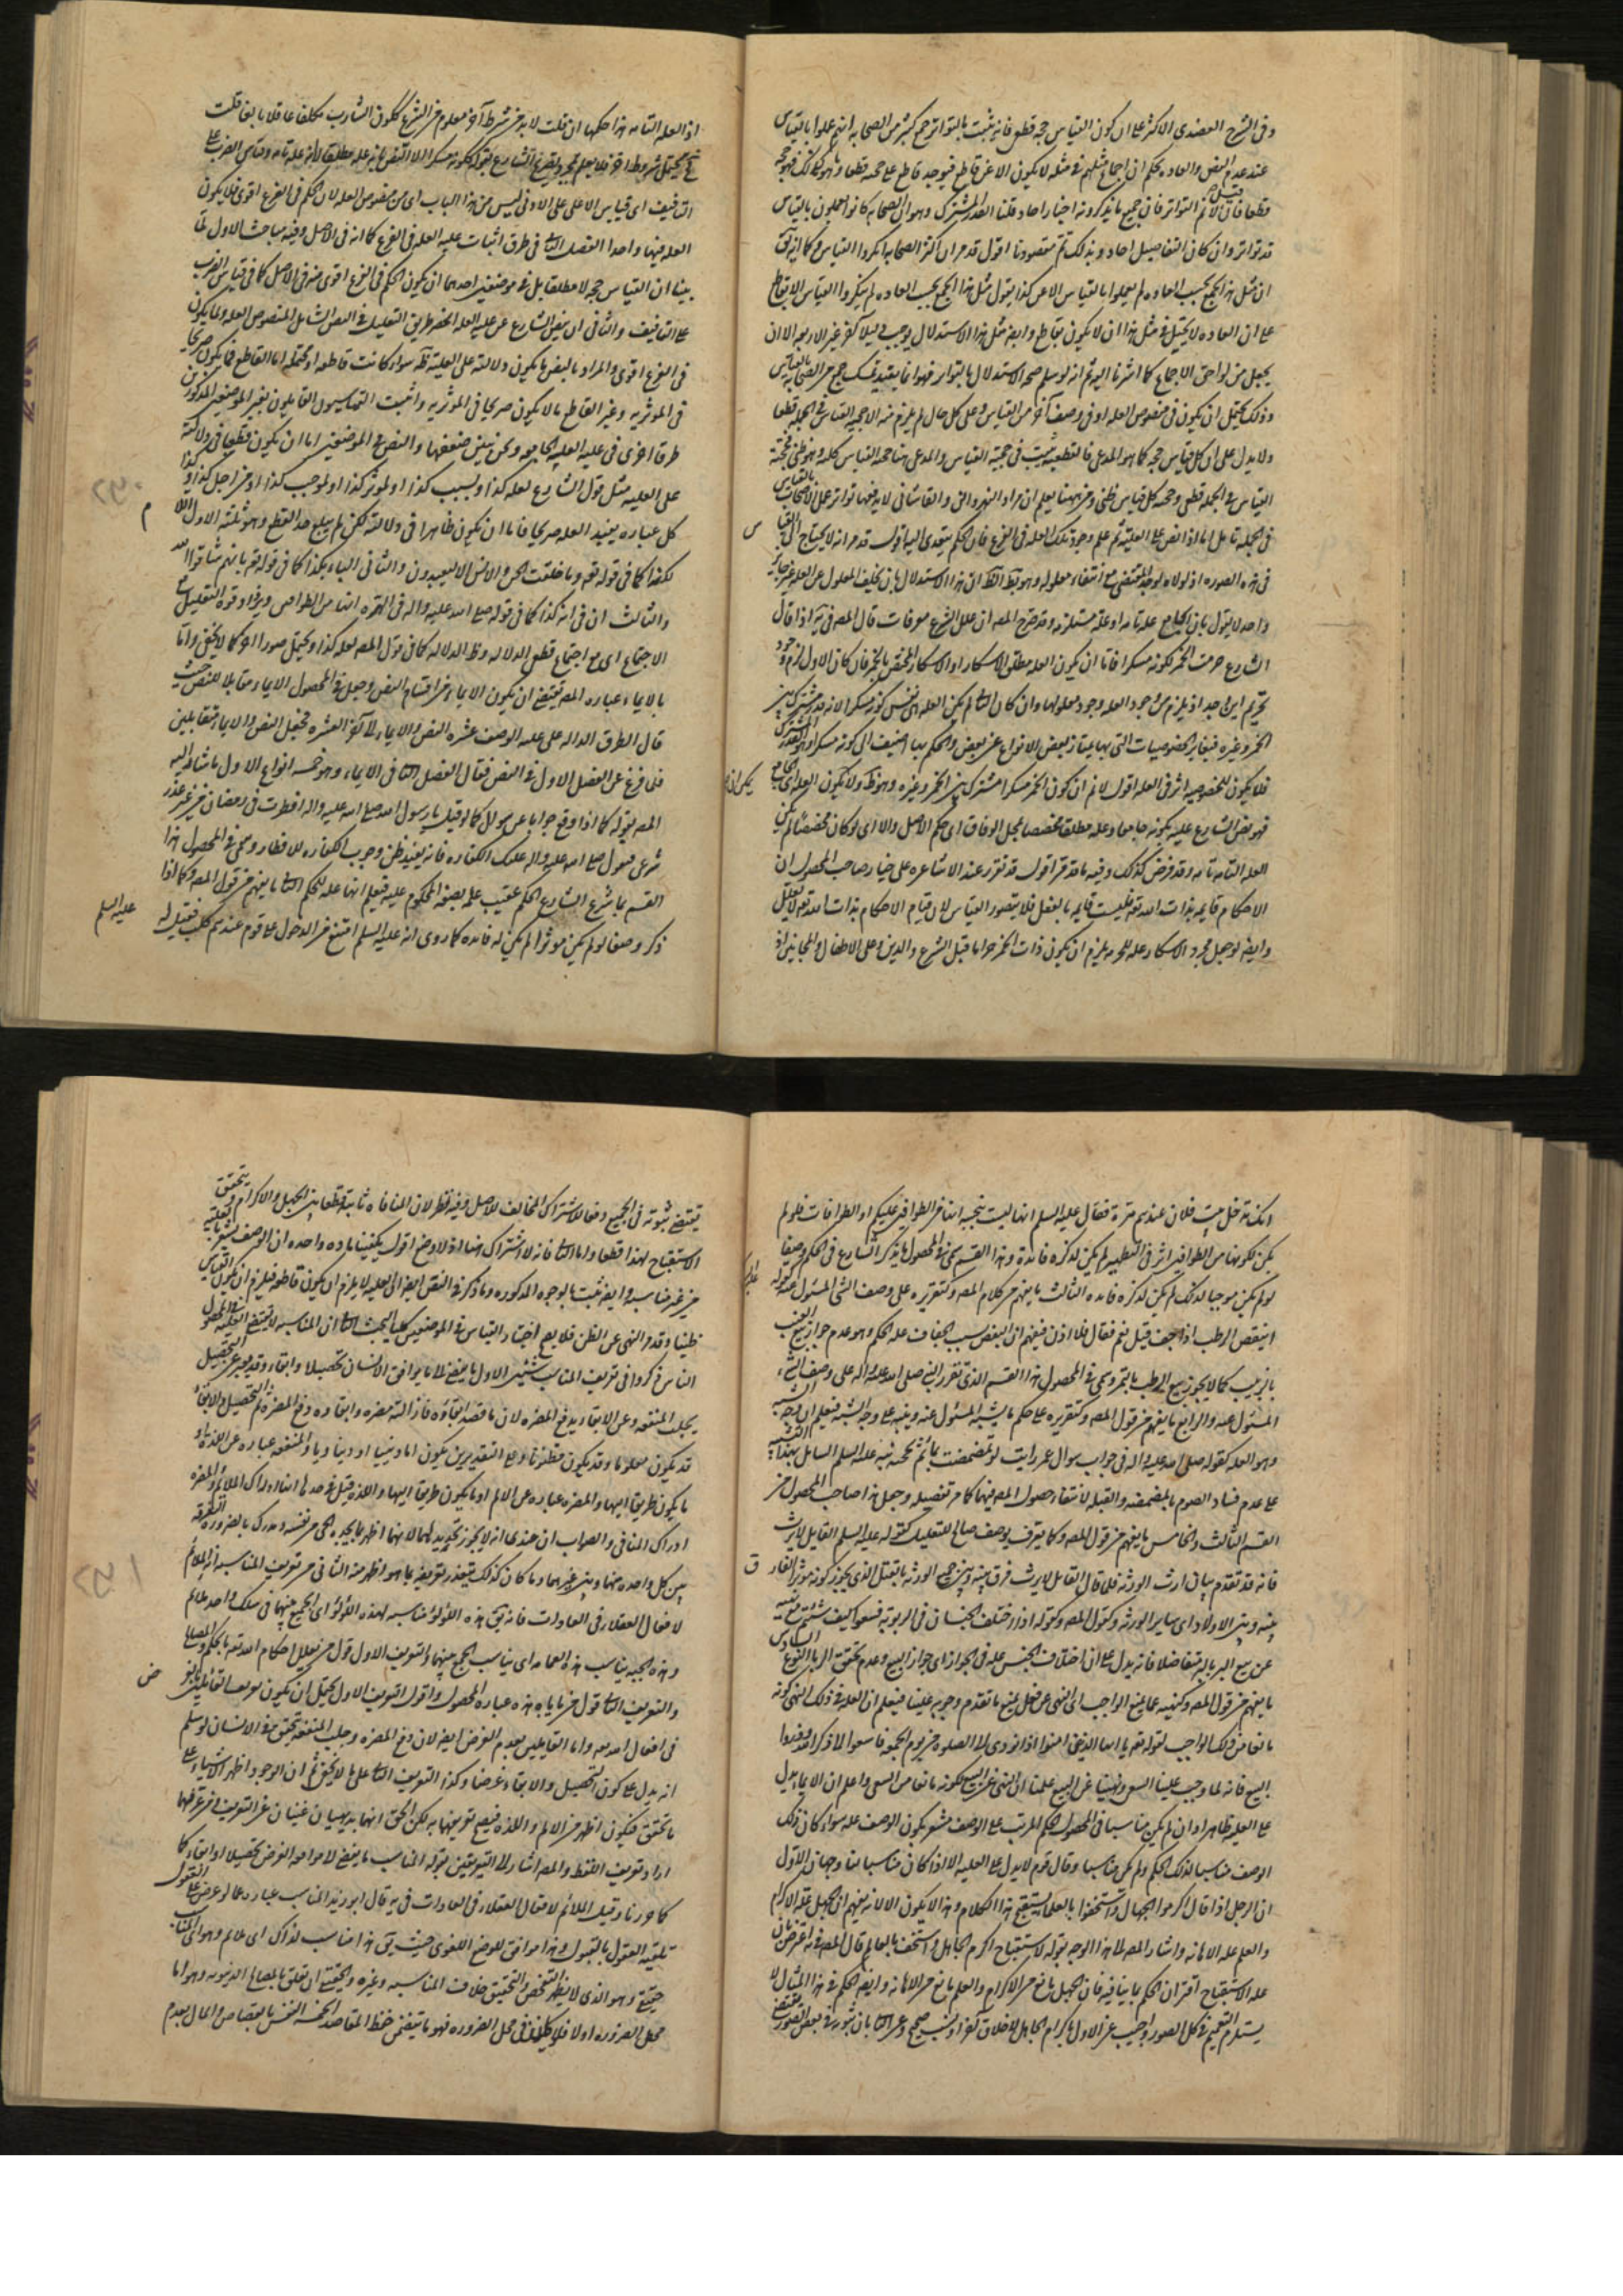 وفى الشرح العضدى الاكثر على ان كون القياس حجه قطعى فانه ثبت بالتواتر عن جمع كثير من الصحابه انهم عملوا بالقياس
عند عدم النص والعاده تحكم ان اجماع مثلهم فى مثله لا يكون الا عن قاطع فيوجد قاطع على حجيته قطعا وما هو كذلك فهو حجه
قطعا فان قيل لا نم التواتر فان جميع ما يذكرونه اخبار احاد قلنا القدر المشترك وهو ان الصحابه كانوا يعملون بالقياس
قد تواتر وان كان التفاصيل احاد وبذلك تم مقصودنا اقول قد مر ان اكثر الصحابه انكروا القياس وكما ان يق
ان مثل هذا الجمع بحسب العاده لم يعملوا بالقياس الا عن كذا يقول مثل هذا الجمع بحسب العاده لم ينكروا القياس الا بقاطع
على ان العاده لا تحيل فى مثل هذا ان لا يكون بقاطع وايضا مثل هذا الاستدلال يوجب دليلا آخر غير الاربعه الا ان
يجعل من لواحق الاجماع كما اشرنا اليه ثم انه لو سلم صحه الاستدلال بالتواتر فهو انما يفيد تمسك جمع من الصحابه بالقياس
وذلك يحتمل ان يكون فى منصوص العله او فى وصف آخر من القياس وعلى كل حال لم يلزم منه الا حجيه القياس فى الجمله قطعا
ولا يدل على ان كل قياس حجه كما هو المدعى فالقطعيه ثبتت فى حجية القياس والمدعى هنا حجيه القياس كله وهو ظنى فحجية
القياس فى الجمله قطعى وحجيه كل قياس ظنى ومن ههنا يعلم ان مراد النهروانى والقاشانى لا يدفعها تواتر عمل الاصحاب بالقياس
فى الجمله تامل اما اذا نص على العلية ثم علم وجود تلك العله فى الفرع فان الحكم يتعدى اليها اقول قد مر انه لا يحتاج الى القياس
فى هذه الصوره اذ لولاه لوجد المقتضى مع انتفاء معلوله وهو بط الظ ان هذا الاستدلال بان تخلف المعلول عن العله غير جائز
واحد لا يقول بان الجامع عله تامه او علة مستلزمه وقد صرح المصه ان علل الشرع معرفات قال المصه فى يه اذا قال
الشارع حرمت الخمر لكونه مسكرا فاما ان يكون العله مطلق الاسكار او الاسكار المختص بالخمر فان كان الاول لزم وجود
تحريم اين وجد اذ يلزم من وجود العله وجود معلولها وان كان الثا لم يكن العله هى نفس كونه مسكرا لانه قدر مشترك بين
الخمر وغيره فيغاير الخصوصيات التى بها يمتاز بعض الانواع عن بعض والحكم بها اضيف الى كونه مسكرا وهو القدر المشترك
فلا يكون للخصوصيه اثر فى العله اقول لا نم ان كون الخمر مسكرا مشترك بين الخمر وغيره وهو ظ ولا يكون العله اى الجامع
فهو نص الشارع عليه بكونه جامعا وعله مطلقا مخصصا بمحل الوفاق اى حكم الاصل والا اى لو كان مخصصا لم يكن
العله التامه تامه وقد فرض كذلك وفيه ما قد مر اقول قد تقرر عند الاشاعره على خيار صاحب المحصول ان
الاحكام قايمه بذات الله تعه فليست قايمه بالفعل فلا يتصور القياس لان قيام الاحكام بذات الله تعه لا يعلل
وايضا لو جعل مجرد الاسكار عله للحرمه يلزم ان يكون ذات الخمر حراما قبل الشرع والدين وعلى الاطفال والمجانين اذ
اذ العله التامه هذا حكمها ان قلت لا بد من شرط آخر معلوم من الشرع ككون الشارب مكلفا عاقلا بالغا قلت
العله فيها واحد الفصل الثا فى طرق اثبات عليه العله فى الفرع كما انه فى الاصل وفيه مباحث الاول لما
بينا ان القياس حجه لا مطلقا بل فى موضعين احدهما ان يكون الحكم فى الفرع اقوى منه فى الاصل كما فى قياس الضرب
على التافيف والثانى ان ينص الشارع عن عليه العله انحصر طريق التعليل فى النص الشامل المنصوص العله ولما يكون
فى الفرع اقوى والمراد بالنص ما يكون دلالته على العلية ظه سواء كانت قاطعه او محتمله اما القاطع فما يكون صريحا
فى الموثريه وغير القاطع ما لا يكون صريحا فى الموثريه واثبت القياسيون القايلون بغير الموضعين المذكورين
طرقا اخرى فى عليه العليه الجامع وهو ونحن نبين ضعفها والنص فى الموضعين اما ان يكون قطعيا فى دلالته
على العليه مثل قول الشارع لعله كذا وبسبب كذا او لموثر كذا او لموجب كذا او من اجل كذا او
كل عباره يفيد العله صريحا فاما ان يكون ظاهرا فى دلالته لكن لم يبلغ حد القطع وهو ثلثه الاول اللام
لكذا كما فى قوله تعه وما خلقت الجن والانس الا ليعبدون والثانى الباء بكذا كما فى قوله تعه بانهم شاقوا الله
والثالث ان فى انه كذا كما فى قوله صلى الله عليه واله فى الهره انها من الطوافين ويزداد قوة التعليل مع
الاجتماع اى مع اجتماع قطعى الدلاله وظ الدلاله كما فى قول المصه لعله كذا ويحتمل صورا اخر كما لا يخفى واما
بالايماء عباره المصه يقتضى ان يكون الايماء من اقسام النص وجعل فى المحصول الايماء مقابلا للنص حيث
قال الطرق الداله على عليه الوصف عشره النص والايماء الى آخر العشره فجعل النص والايماء متقابلين
فلما فرغ عن الفصل الاول فى النص فقال الفصل الثا فى الايماء وهو خمسه انواع الاول ما شار اليه
المصه بقوله كما اذا وقع جوابا عن سوال كما لو قيل يا رسول الله صلى الله عليه واله افطرت فى رمضان من غير عذر
شرعى فيقول صلى الله عليه واله عليك الكفاره فانه يفيد ظن وجوب الكفاره للافطار وسمى فى المحصول هذا
القسم بما شرع الشارع الحكم عقيب علمه بصفه المحكوم عليه فيعلم انها عله للحكم الثا ما يفهم من قول المصه وكما اذا
ذكر وصفا لو لم يكن موثرا لم يكن له فايده كما روى انه عليه السلم امتنع من الدخول على قوم عندهم كلب فقيل له
عليه السلم
انك تدخل بيت فلان عندهم هرة فقال عليه السلم انها ليست بنجسه انها من الطوافين عليكم او الطوافات فلو لم
يكن لكونها من الطوافين اثر فى التطهير لم يكن لذكره فايدة وهذا القسم سمى فى المحصول ما يذكر الشارع فى الحكم وصفا
لو لم يكن موجبا لذلك لم يكن لذكره فايده الثالث ما يفهم من كلام المصه وكتقريره على وصف الشى المسئول عنه كقوله
اينقص الرطب اذا جف قيل نعم فقال فلا اذن فيفهم ان النقص بسبب الجفاف عله الحكم وهو عدم جواز بيع العنب
بالزبيب كما لا يجوز بيع الرطب بالتمر وسمى فى المحصول هذا القسم الذى تقرر النبى صلى الله عليه واله على وصف الشى
المسئول عنه والرابع ما يفهم من قول المصه وكتقريره على حكم ما يشبه المسئول عنه وينبه على وجه الشبه فيعلم ان وجه الشبه
وهو العله كقوله صلى الله عليه واله فى جواب سوال عمر رايت لو تمضمضت بماء ثم مججته نبه عليه السلم السايل بهذا التشبيه
على عدم فساد الصوم بالمضمضه والقبله لانتفاء حصول المصه فيهما كما مر تفصيله وجعل هذا صاحب المحصول من
القسم الثالث والخامس ما يفهم من قول المصه وكما يفرق بوصف صالح للتعليل كقوله عليه السلم القاتل لا يرث
فانه قد تقدم بيان ارث الورثه فلما قال القاتل لا يرث فرق بينه وبين جميع الورثه بالقتل الذى يجوز كونه موثرا الفارق
بينه وبين الاولاد اى ساير الورثه وكقول المصه وكقوله اذا اختلف الجنسان فى الربويه فبيعوا كيف شئتم مع نهيه
عن بيع البر بالبر متفاضلا فانه يدل على ان اختلاف الجنس عله فى الجواز اى جواز البيع وعدم تحقق الربا النوع السادس
ما يفهم من قول المصه وكنهيه عما يمنع الواجب اى النهى عن فعل يمنع ما تقدم وجوبه علينا فيعلم ان العله فى ذلك النهى كونه
مانعا من ذلك الواجب لقوله تعه يا ايها الذين امنوا اذا نودى الى الصلوه من يوم الجمعه فاسعوا الى ذكر الله وذروا
البيع فانه لما وجب علينا السعى ونهينا عن البيع علمنا ان النهى عن البيع لكونه مانعا من السعى واعلم ان الايماء يدل
على العليه ظاهرا وان لم يكن مناسبا فى المحصول الحكم المرتب على الوصف مشعر بكون الوصف عله سواء كان ذلك
الوصف مناسبا لذلك الحكم ولم يكن مناسبا وقال قوم لا يدل على العليه الا اذا كان مناسبا لنا وجهان الاول
ان الرجل اذا قال اكرموا الجهال واستخفوا بالعلماء يستقبح هذا الكلام وهذا لا يكون الا لانه يفهم ان الجهل عله الاكرام
والعلم عله الاهانه واشار المصه الى هذا الوجه بقوله لاستقباح اكرم الجاهل واستخف بالعالم قال المصه فى يه اعترض بان
عله الاستقباح اقتران الحكم بما ينافيه فان الجهل مانع من الاكرام والعلم مانع من الاهانه وايضا الحكم فى هذا المثال لا
يستلزم التعميم فى كل الصور واجيب عن الاول باكرام الجاهل لاخلاق آخر او نسب صحيح وعن الثا بان ثبوته فى بعض الصور يقتضى
يقتضى ثبوته فى الجميع دفعا للاشتراك المخالف للاصل وفيه نظر لان المنافاه ثابته قطعا بين الجهل والاكرام وتحقق
الاستقباح لهذا قطعا واما الثا فانه لا اشتراك ايضا اذ لا وضع اقول يكفينا ماده واحده ان الوصف يشعر بالعلية
من غير مناسبه وايضا يثبت بالوجوه المذكوره وما ذكر فى النقض ايضا الى العليه لا يلزم ان يكون قاطعه فيلزم ان يكون القياس
ظنيا وقد مر النهى عن الظن فلا يصح اختيار القياس فى الموضعين كليا البحث الثا ان المناسبه لا يقتضى العلية فى المحصول
الناس ذكروا فى تعريف المناسب شيئين الاول ما يفضى الى ما يوافق الانسان تحصيلا وابقاء وقد يعبر عن التحصيل
بجلب المنفعه وعن الابقاء بدفع المضره لان ما قصد ابقاؤه فازالته مضره وابقاوه دفع المضرة ثم هذا التحصيل والابقاء
قد يكون معلوما وقد يكون مظنونا وعلى التقديرين يكون اما دينيا او دنياويا والمنفعه عباره عن اللذه او
ما يكون طريقا اليها والمضره عباره عن الالم او ما يكون طريقا اليها واللذه قيل فى حدها انها ادراك الملائم والمضره
ادراك المنافى والصواب ان عندى انه لا يجوز تحديدهما لانهما اظهر ما يجده الحى من نفسه ويدرك بالضروره التفرقه
بين كل واحده منها وبين غيرها وما كان كذلك يتعذر تعريفه بما هو اظهر منه الثانى من تعريف المناسبه انه الملائم
لافعال العقلاء فى العادات فانه يق هذه اللؤلؤ مناسبه لهذه اللؤلؤ اى الجمع بينهما فى سلك واحد ملائم
وهذه الجبه يناسب هذه العمامه اى يناسب الجمع بينهما والتعريف الاول قول من يعلل احكام الله تعه بالحكم والمصالح
والتعريف الثا قول من يابا به هذه عباره المحصول واقول التعريف الاول يحتمل ان يكون تعريف القائلين بالغرض
فى افعال الله تعه واما القايلين بعدم الغرض ايضا لان دفع المضره وجلب المنفعه يتحقق فى الانسان لو سلم
انه يدل على كون التحصيل والابقاء غرضا وكذا التعريف الثا على ما لا يخفى ثم ان الوجود اظهر الاشياء على
ما تحقق فيكون اظهر من الالم واللذه فيصح تعريفهما به لكن الحق انهما بديهيان غنيان عن التعريف ومن عرفهما
اراد تعريف اللفظ والمصه اشار الى التعريفين بقوله المناسب ما يفضى الى موافقه الغرض تحصيلا او ابقاء كما
كما حررنا وقيل الملائم لافعال العقلاء فى العادات فى يه قال ابو زيد المناسب عباره عما لو عرض على العقول
تلقته العقول بالقبول وهذا موافق للوضع اللغوى حيث يق هذا مناسب لذلك اى ملائم وهو اى المناسب
حقيقى وهو الذى لا يظهر التشخص والتحقيق خلاف المناسبه وغيره والحقيقى ان تعلق بالمصالح الدنيويه وهو اما
محل الضروره او لا فلا كلام فى محل الضروره فهو ما يتضمن حفظ المقاصد الخمسه النفس بالقصاص والمال بعدم